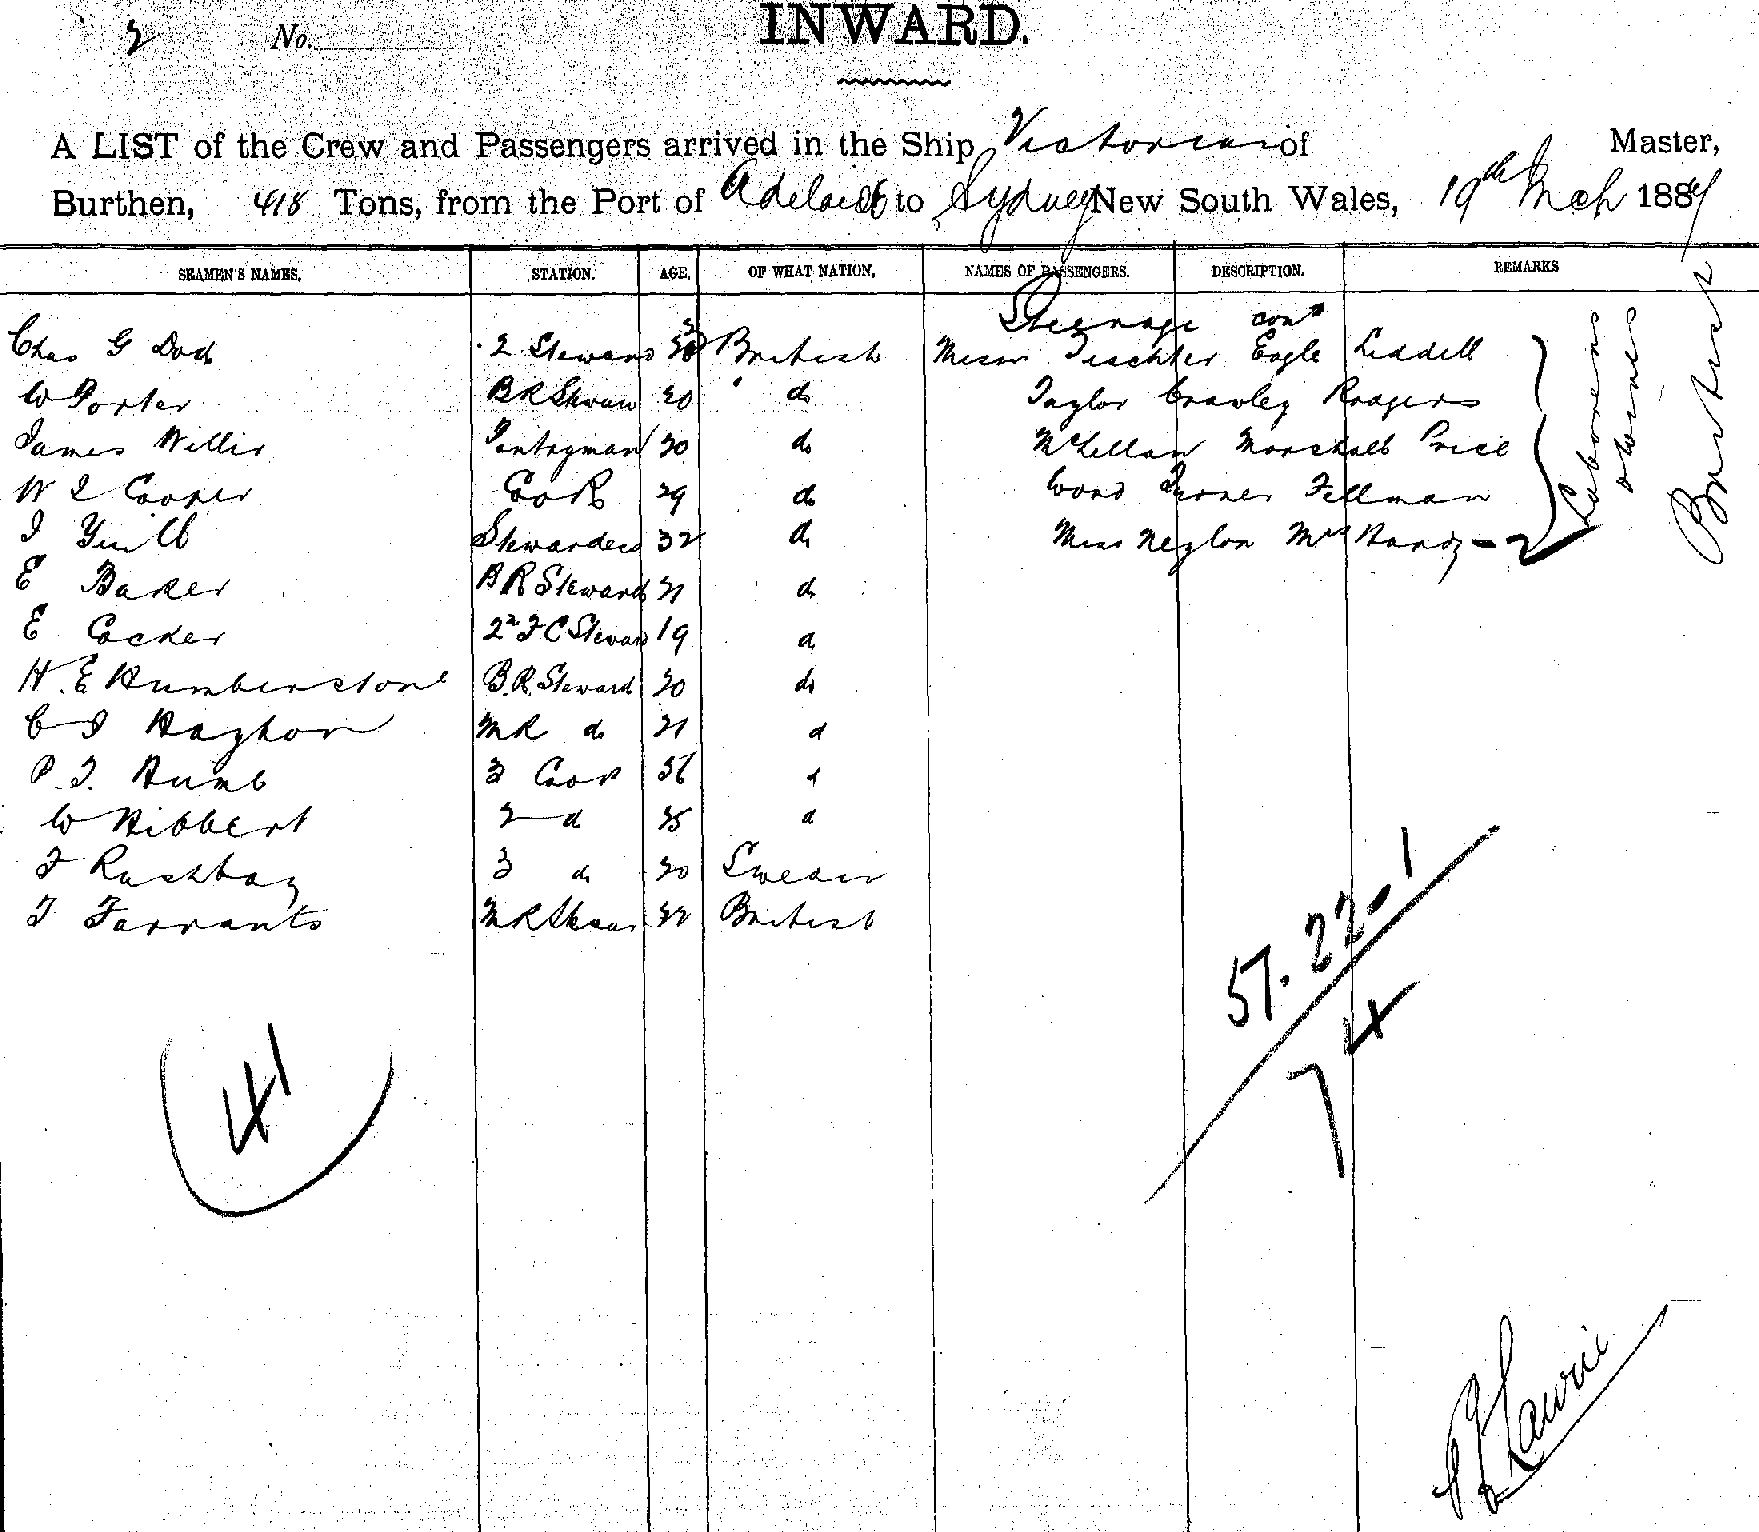 2 No.
INWARD.
A LIST of the Crew and Passengers arrived in the Ship Victorian of Master,
Burthen, 418 Tons, from the Port of Adelaide to Sydney New South Wales, 19th Mch 1887
SEAMEN'S NAMES. STATION. AGE. OF WHAT NATION. NAMES OF PASSENGERS. DESCRIPTION. REMARKS
Steerage cont
Chas G Dod 2 Steward British Messrs Eagle Liddell
W Porter B R 20 d Taylor Crawley Rodgers
James Willis Pantryman 20 d McLellan Marshall Price
W Cooper Cook 29 d Wood Turner Fellman
Yuill 32 d Miss Neylon Mrs
E Baker B R Steward 21 d
E Cocker 2nd F C Steward 19 d
H. E Humberstone B.R. Steward 20 d
C M R d 21 d
P. 3 Cook 36 d
W Hibbert 2 d 25 d
3 d 20 Sweden
Farrants M R 22 British
Laborers
miners
British
57. 22 - 1
74
41
Lawrie